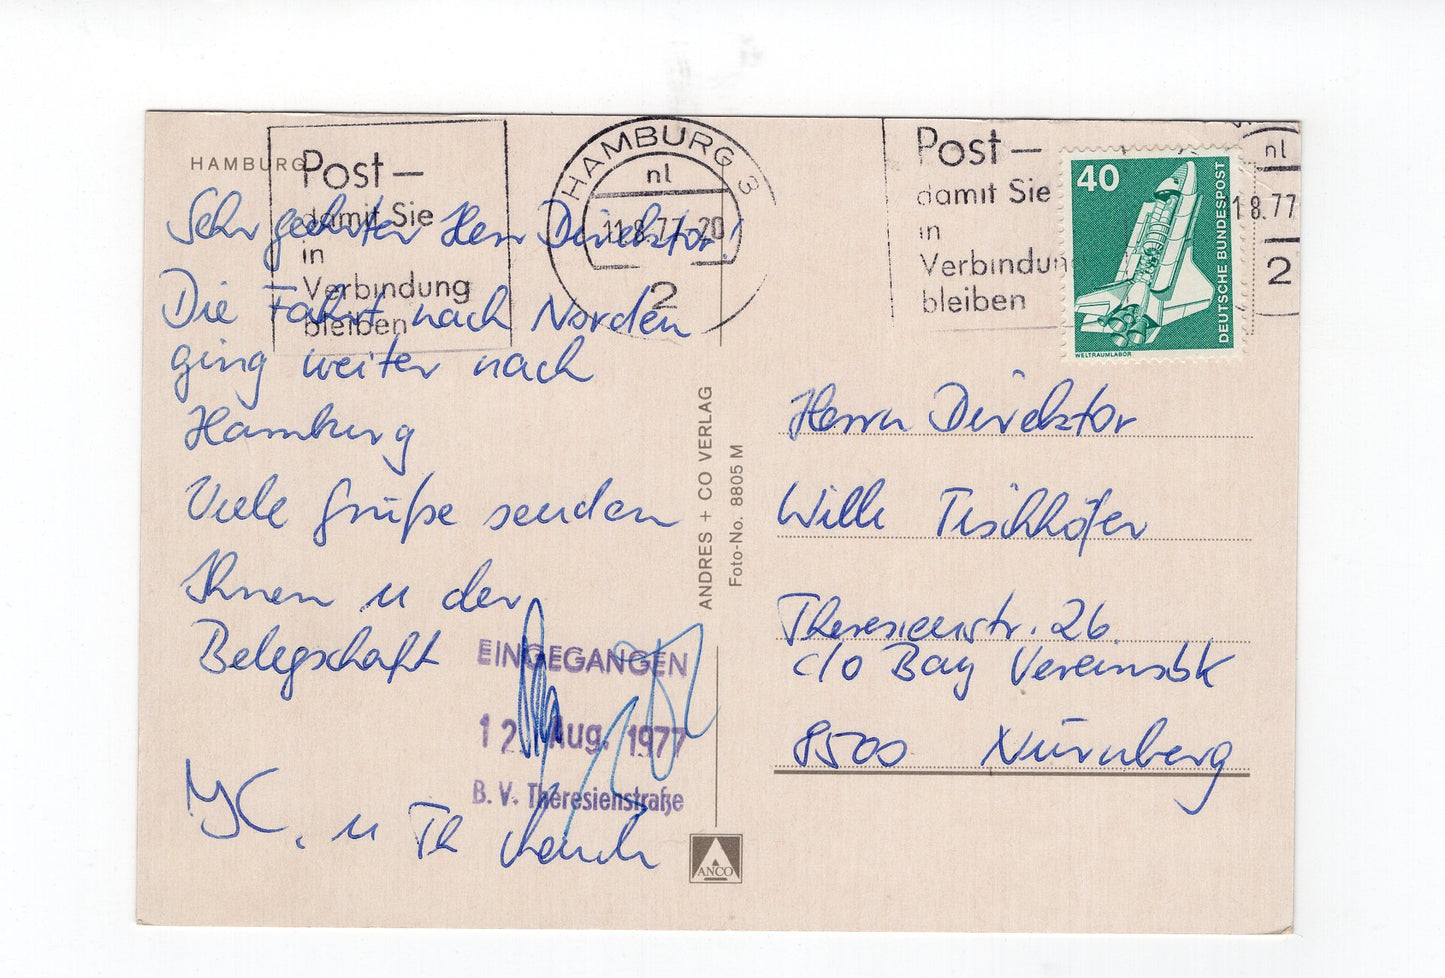 HAMBURG
Post –
damit Sie
in
Verbindung
bleiben
HAMBURG 3
nl
11.8.77-20
2
Post –
damit Sie
in
Verbindun
bleiben
nl
18.77
2
40
DEUTSCHE BUNDESPOST
WELTRAUMLABOR
Sehr geehrter Herr Direktor!
Die Fahrt nach Norden
ging weiter nach
Hamburg
Viele Grüße senden
Ihnen u der
Belegschaft
u Th
ANDRES + CO VERLAG
Foto-No. 8805 M
EINGEGANGEN
12. Aug. 1977
B. V. Theresienstraße
ANCO
Herrn Direktor
Willi Tischhöfer
Theresienstr. 26
c/o Bay Vereinsbk
8500 Nürnberg